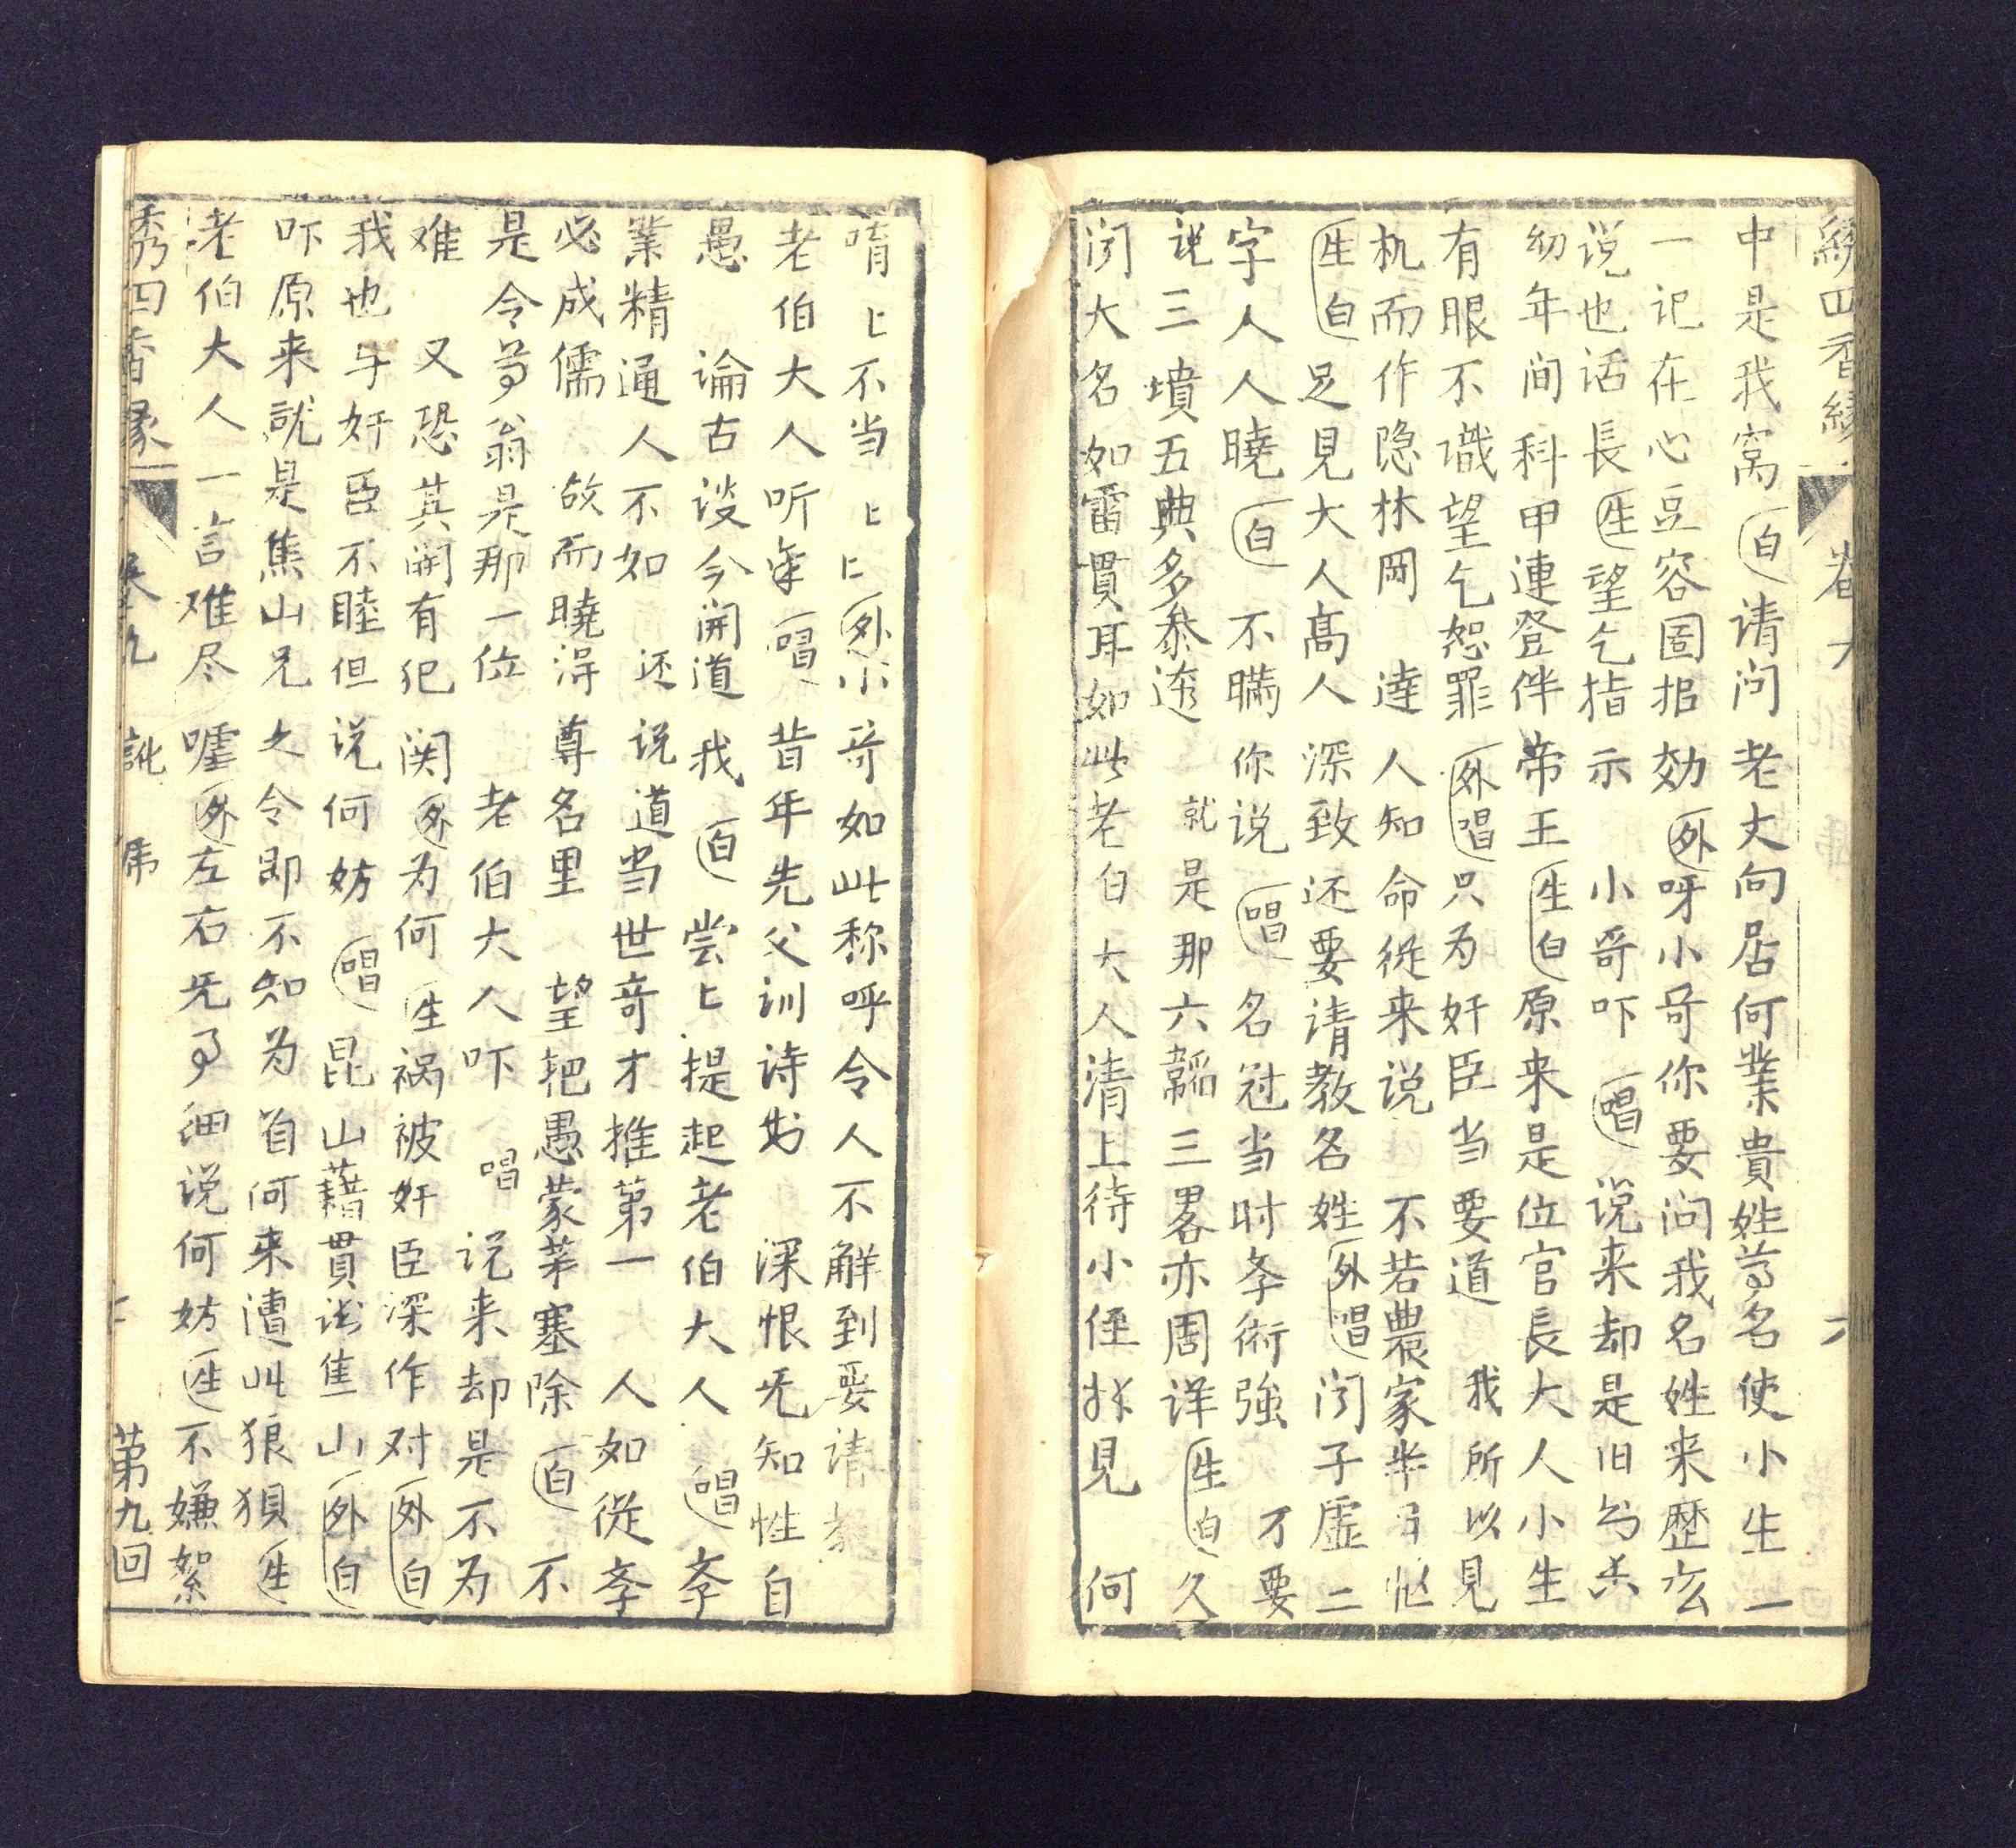 綉四香緣 卷九 六
中是我窩白请问老丈向居何業貴姓夢名使小生一
一记在心豆容圖招効外呀小哥你要问我名姓来歷么
说也话長生望乞指示 小哥吓唱说来却是旧
幼年间科甲連登伴帝王生白原来是位官長大人小生
有眼不識望乞恕罪外唱只为奸臣当要道 我所以見
机而作隐林岡 達人知命從来说 不若農家半日忙
生白足見大人高人深致还要请教名姓外唱闵子虚二
字人人曉白不瞒你说唱名冠当时孝術強 不要
说三墳五典多叅透 就是那六韜三畧亦周详生白久
闵大名如雷貫耳如此老白大人清上待小侄拜見 何
唷匕不当匕匕外小哥如此称呼令人不解到要请教
老伯大人听亊唱昔年先父训诗书 深恨旡知性自
愚 論古谈今開道我白尝匕提起老伯大人唱孝
業精通人不如 还说道当世奇才推苐一 人如從孝
必成儒 故而曉淂尊名里 望把愚蒙茅塞除白不
是令夢翁是那一位 老伯大人吓唱说来却是不为
难 又恐其開有犯関外为何生祸被奸臣深作对外白
我也与奸臣不睦但说何妨唱昆山藉貫 焦山外白
吓原来就是焦山兄之令郎不知为首何来遭此狼狽生
老伯大人一言难尽嚯外左右旡亊细说何妨生不嫌絮
秀四香緣 卷九 訛 第九回